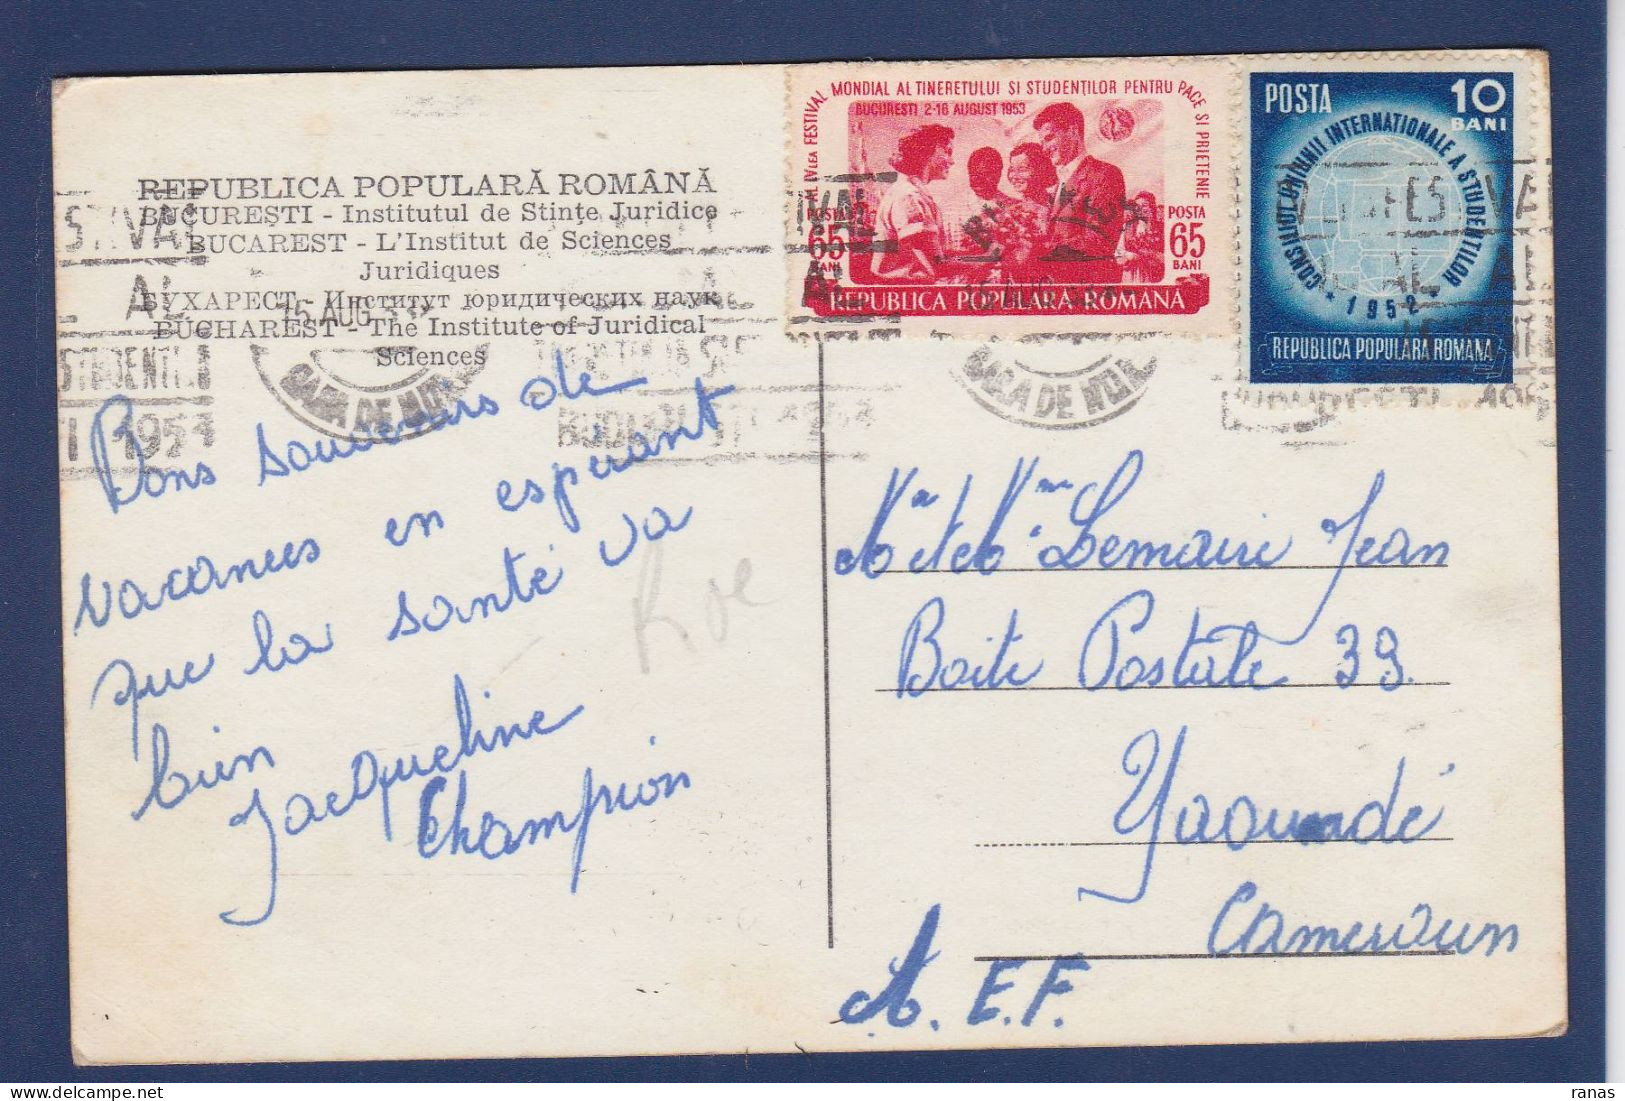 REPUBLICA POPULARĂ ROMÂNĂ
BUCUREȘTI - Institutul de Stinţe Juridice
BUCAREST - L'Institut de Sciences
Juridiques
БУХАРЕСТ - Институт юридических наук
BUCHAREST - The Institute of Juridical
Sciences
AL IV LEA FESTIVAL MONDIAL AL TINERETULUI SI STUDENȚILOR PENTRU PACE SI PRIETENIE
BUCUREȘTI 2-16 AUGUST 1953
POSTA
65
BANI
POSTA
65
BANI
REPUBLICA POPULARĂ ROMÂNĂ
POSTA 10
BANI
CONSILIUL UNIUNII INTERNATIONALE A STUDENTILOR
1952
REPUBLICA POPULARA ROMANA
15 AUG
GARA DE NORD
Bons souvenirs de
vacances en espérant
que la santé va
bien
Jacqueline
Champion
Roe
Mr et Mme Lemaire Jean
Boite Postale 39.
Yaoundé
Cameroun
A.E.F.
ranas